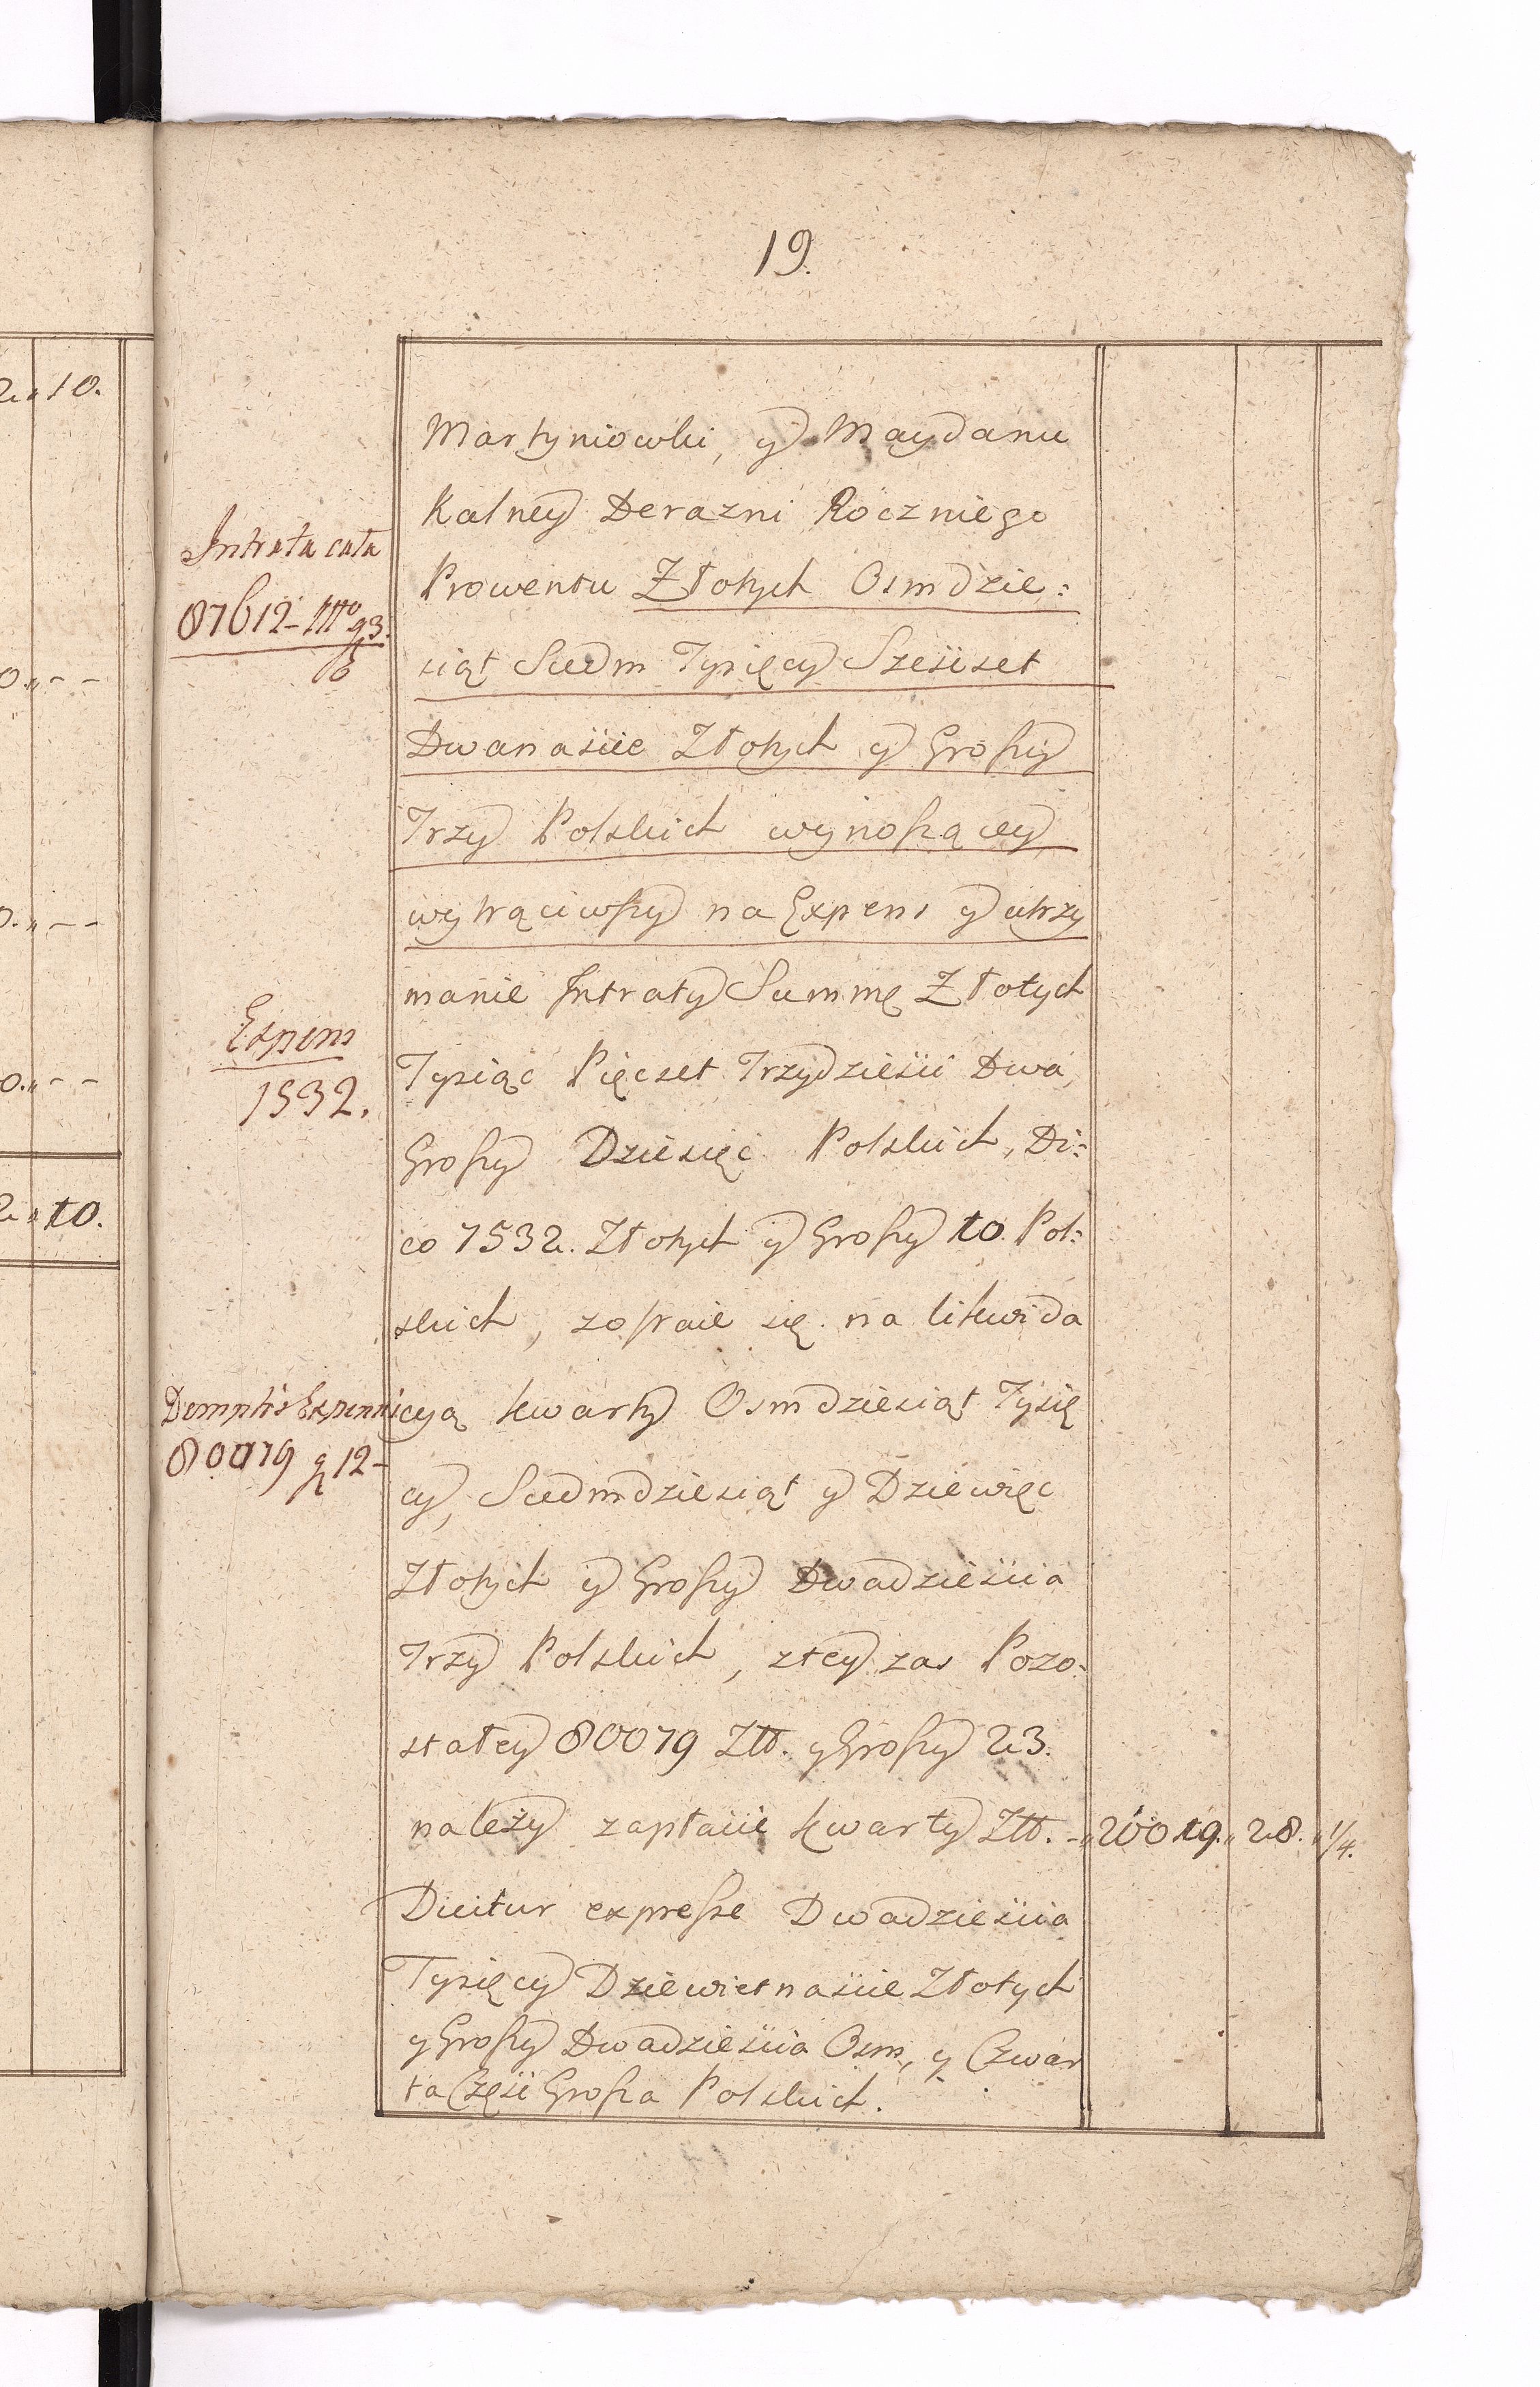 19.
Martyniowki, y Maydanu
Kalney Derazni Roczniego
Prowentu Złotych Osmdzie:
siąt Siedm Tysięcy Sześćset
Dwanaście Złotych y Groszy
Trzy Polskich wynoszącey
wytrąciwszy na Expens y utrzy
manie Intraty Summę Złotych
Tysiąc Pięcset Trzydzieści Dwa,
Groszy Dziesięć Polskich, Di:
co 7532. Złotych y Groszy 10. Pol:
skich, zostaie się na likwida
cyą kwarty Osmdziesiąt Tysię
cy, Siedmdziesiąt y Dziewięc
Złotych y Groszy Dwadzieścia
Trzy Polskich, z tey zas Pozo:
stałey 80079 Złł. y Groszy 23.
należy zapłacić kwarty Złł. 20019. 28. 1/4.
Dicitur expresse Dwadzieścia
Tysięcy Dziewietnaście Złotych
y Groszy Dwadzieścia Osm, y Czwar
ta Częśc Grosza Polskich.
Intrata cała
87612
Expens
1532.
Demptis Expensis
80079 g 12-
10.
10.